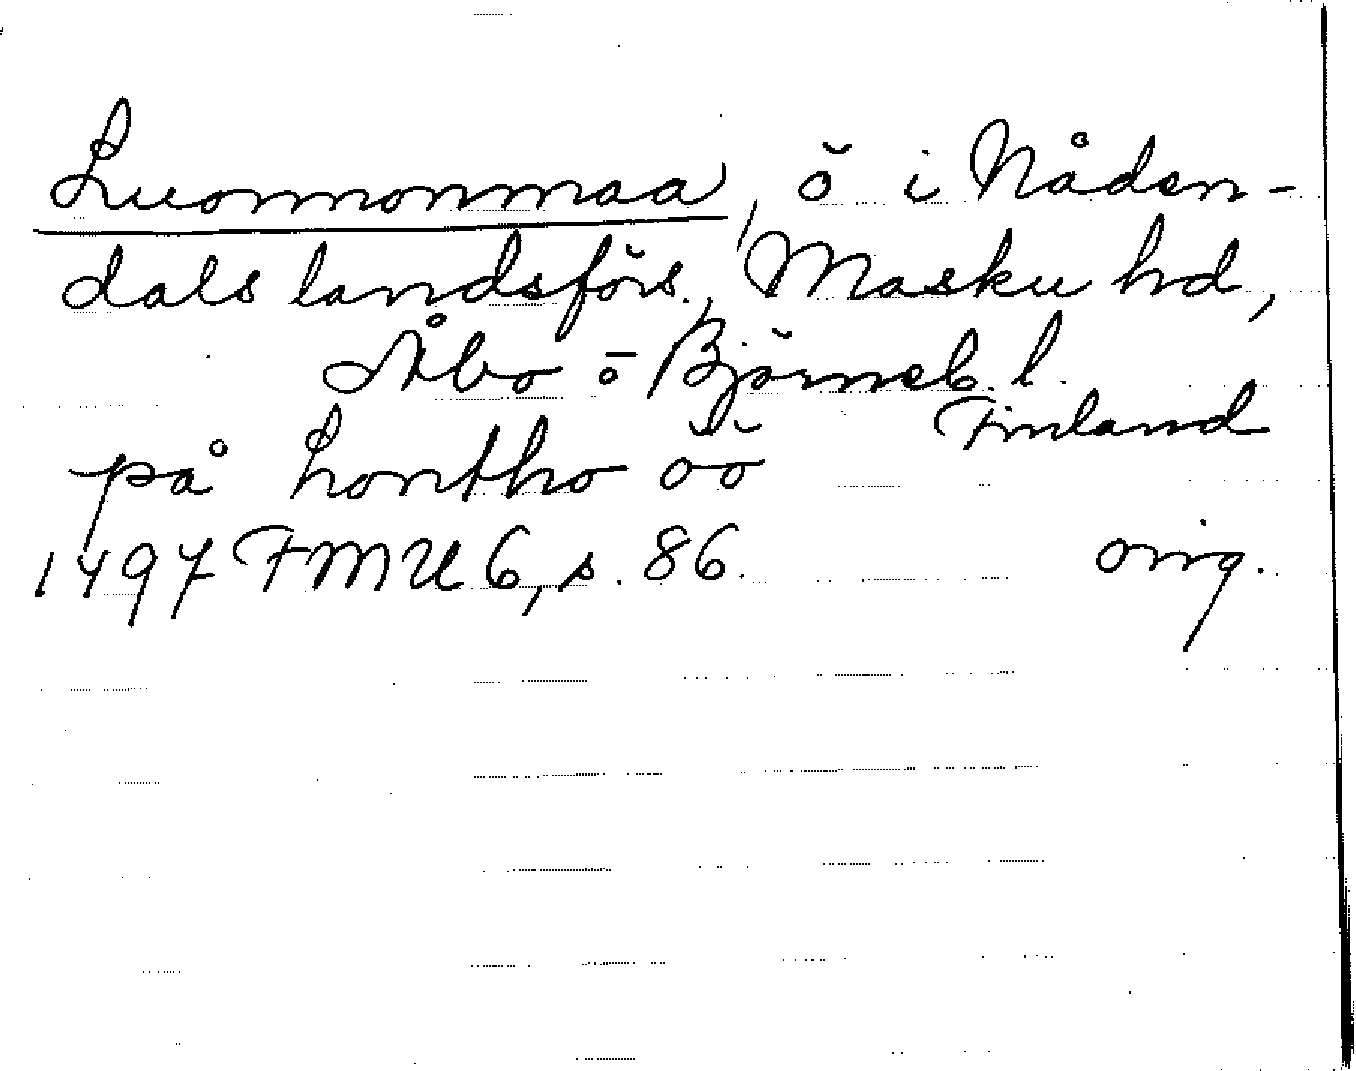 Luonnonmaa, ö i Nåden-
dals landsförs., Masku hd,
Åbo o Björneb. l.
Finland
på Lontho öö
1497 FMU 6, s. 86. orig.